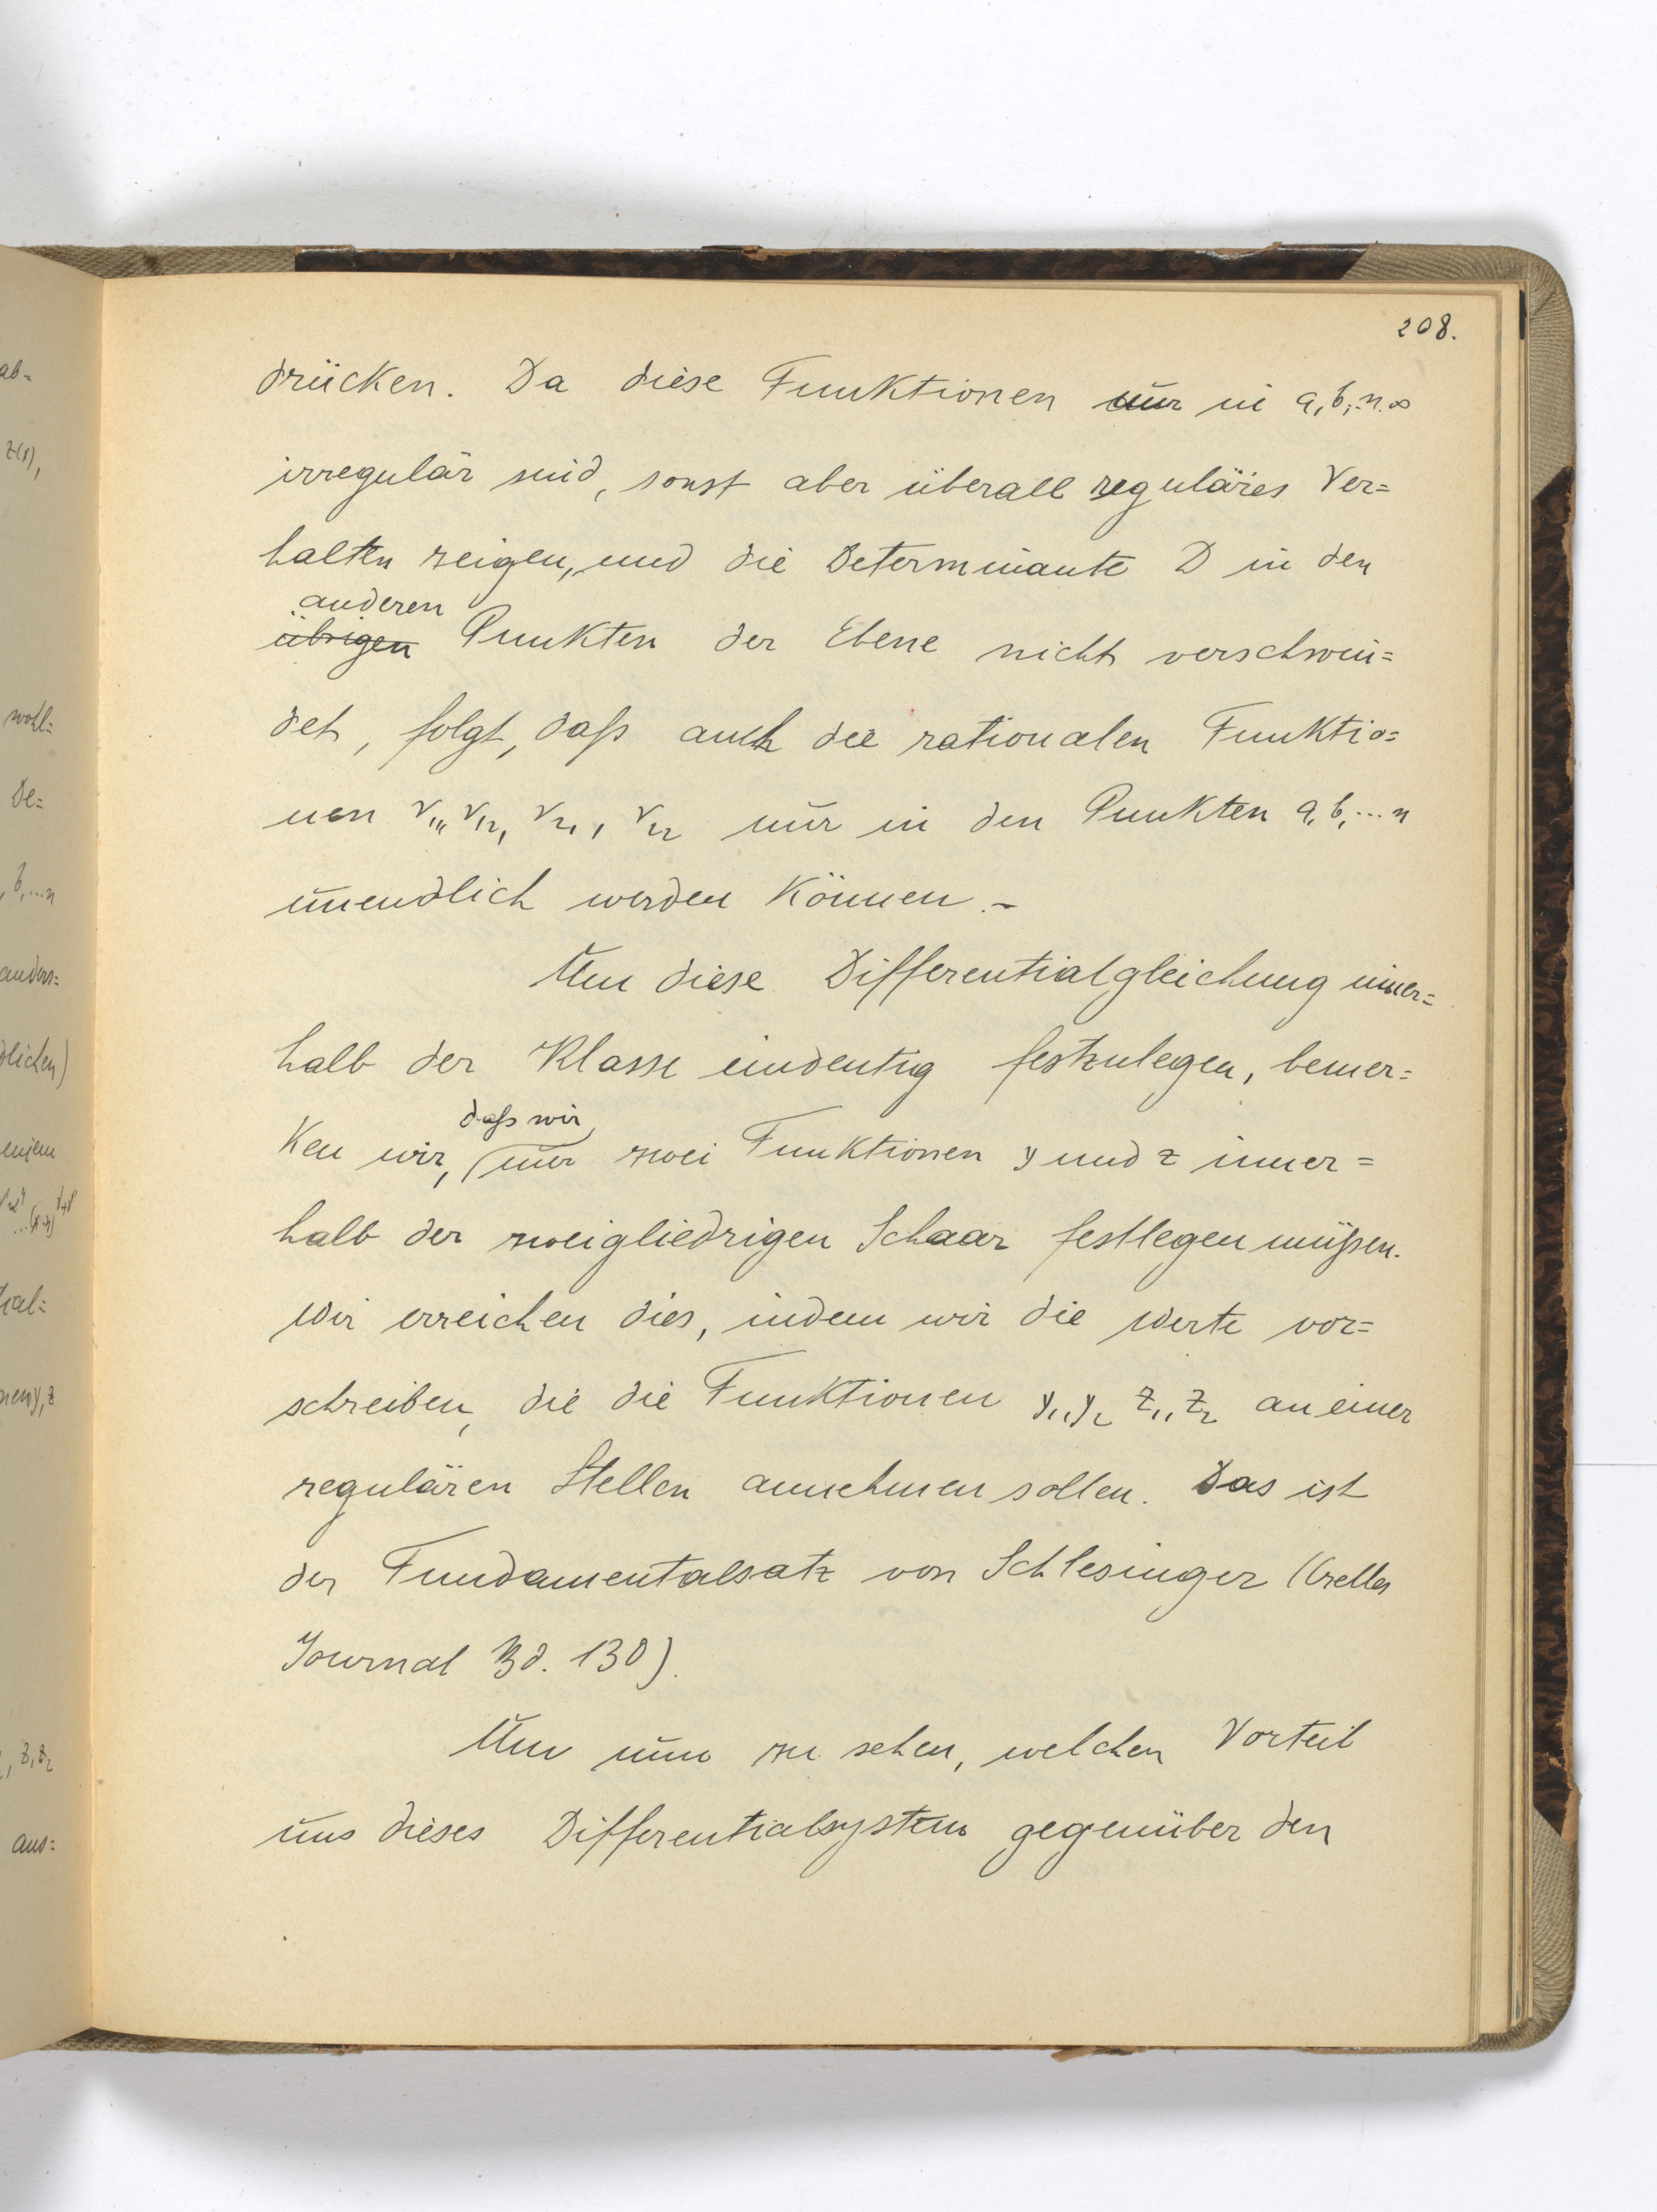 208.
drücken. Da diese Funktionen nur in a, b, .. n. ∞
irregulär sind, sonst aber überall reguläres Ver=
halten zeigen, und die Determinante D in den
anderen
übrigen Punkten der Ebene nicht verschwin=
det, folgt, daß auch die rationalen Funktio=
nen r₁₁, r₁₂, r₂₁, r₂₂ nur in den Punkten a, b, ... n
unendlich werden können. -
Um diese Differentialgleichung inner=
halb der Klasse eindeutig festzulegen, bemer=
daß wir
ken wir, nur zwei Funktionen y und z inner=
halb der zweigliedrigen Schaar festlegen müßen.
Wir erreichen dies, indem wir die Werte vor=
schreiben, die die Funktionen y₁, y₂ z₁, z₂ an einer
regulären Stellen annehmen sollen. Das ist
der Fundamentalsatz von Schlesinger (Crelles
Journal Bd. 130).
Um nun zu sehen, welchen Vorteil
uns dieses Differentialsystem gegenüber den